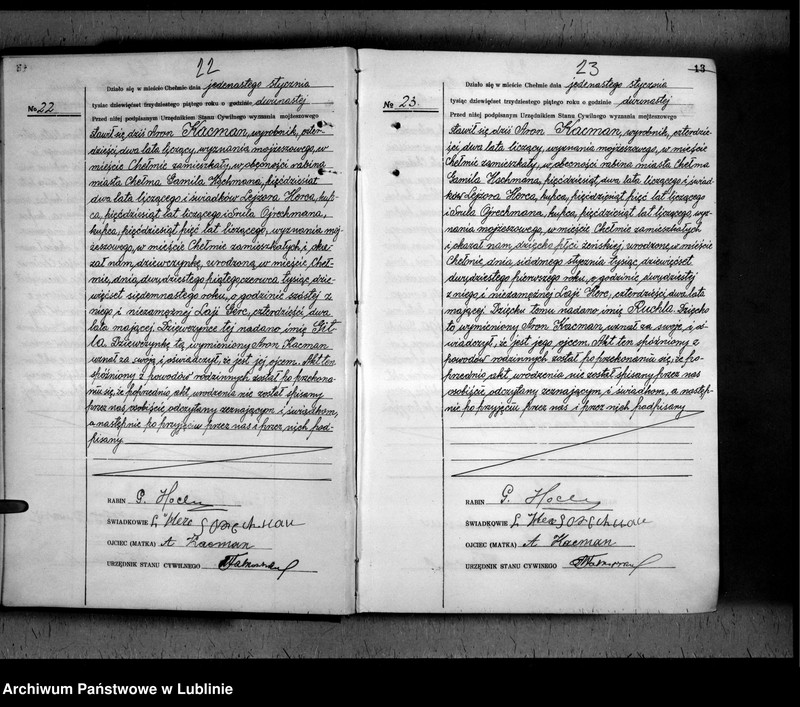 22
Działo się w mieście Chełmie dnia jedenastego stycznia
tysiąc dziewięćset trzydziestego piątego roku o godzinie dwunastej
Przed niżej podpisanym Urzędnikiem Stanu Cywilnego wyznania mojżeszowego
№ 22
stawił się dziś Aron Kacman, wyrobnik, czter-
dzieści dwa lata liczący, wyznania mojżeszowego, w
mieście Chełmie zamieszkały, w obecności rabina
miasta Chełma Gamila Hochmana, pięćdziesiąt
dwa lata liczącego i świadków Lejzora Herca, kup-
ca, pięćdziesiąt lat liczącego i Srula Ojrechmana,
kupca, pięćdziesiąt pięć lat liczącego, wyznania moj-
żeszowego, w mieście Chełmie zamieszkałych, i oka-
zał nam, dziewczynkę, urodzoną w mieście Cheł-
mie, dnia dwudziestego piątego czerwca tysiąc dzie-
więćset siedemnastego roku, o godzinie szóstej z
niego i niezamężnej Łaji Herc, czterdzieści dwa
lata mającej. Dziewczynce tej nadano imię Git-
la. Dziewczynkę tą wymieniony Aron Kacman
uznał za swoją i oświadczył, że jest jej ojcem. Akt ten
spóźniony z powodów rodzinnych został po przekona-
niu się, że poprzednio akt urodzenia nie został spisany
przez nas osobiście odczytany zeznającym i świadkom,
a następnie po przyjęciu przez nas i przez nich pod-
pisany
RABIN G. Hochm
ŚWIADKOWIE L. Herc
OJCIEC (MATKA) A Kacman
URZĘDNIK STANU CYWILNEGO
23
13
Działo się w mieście Chełmie dnia jedenastego stycznia
tysiąc dziewięćset trzydziestego piątego roku o godzinie dwunastej
Przed niżej podpisanym Urzędnikiem Stanu Cywilnego wyznania mojżeszowego
№ 23.
stawił się dziś Aron Kacman, wyrobnik, czterdzie-
ści dwa lata liczący, wyznania mojżeszowego, w mieście
Chełmie zamieszkały, w obecności rabina miasta Chełma
Gamila Hochmana, pięćdziesiąt dwa lata liczącego i świad-
ków Lejzora Herca, kupca, pięćdziesiąt pięć lat liczącego
i Srula Ojrechmana, kupca, pięćdziesiąt lat liczącego, wyz-
nania mojżeszowego, w mieście Chełmie zamieszkałych
i okazał nam, dziecko płci żeńskiej urodzone w mieście
Chełmie dnia siódmego stycznia tysiąc dziewięćset
dwudziestego pierwszego roku, o godzinie dwudziestej
z niego i niezamężnej Łaji Herc, czterdzieści dwa lata
mającej. Dziecku temu nadano imię Ruchla. Dziecko
to wymieniony Aron Kacman uznał za swoje i o-
świadczył, że jest jego ojcem. Akt ten spóźniony z
powodów rodzinnych został po przekonaniu się, że po-
przednio akt urodzenia nie został spisany przez nas
osobiście odczytany zeznającym i świadkom, a następ-
nie po przyjęciu przez nas i przez nich podpisany
RABIN G. Hochm
ŚWIADKOWIE L. Herc
OJCIEC (MATKA) A Kacman
URZĘDNIK STANU CYWINEGO
Archiwum Państwowe w Lublinie